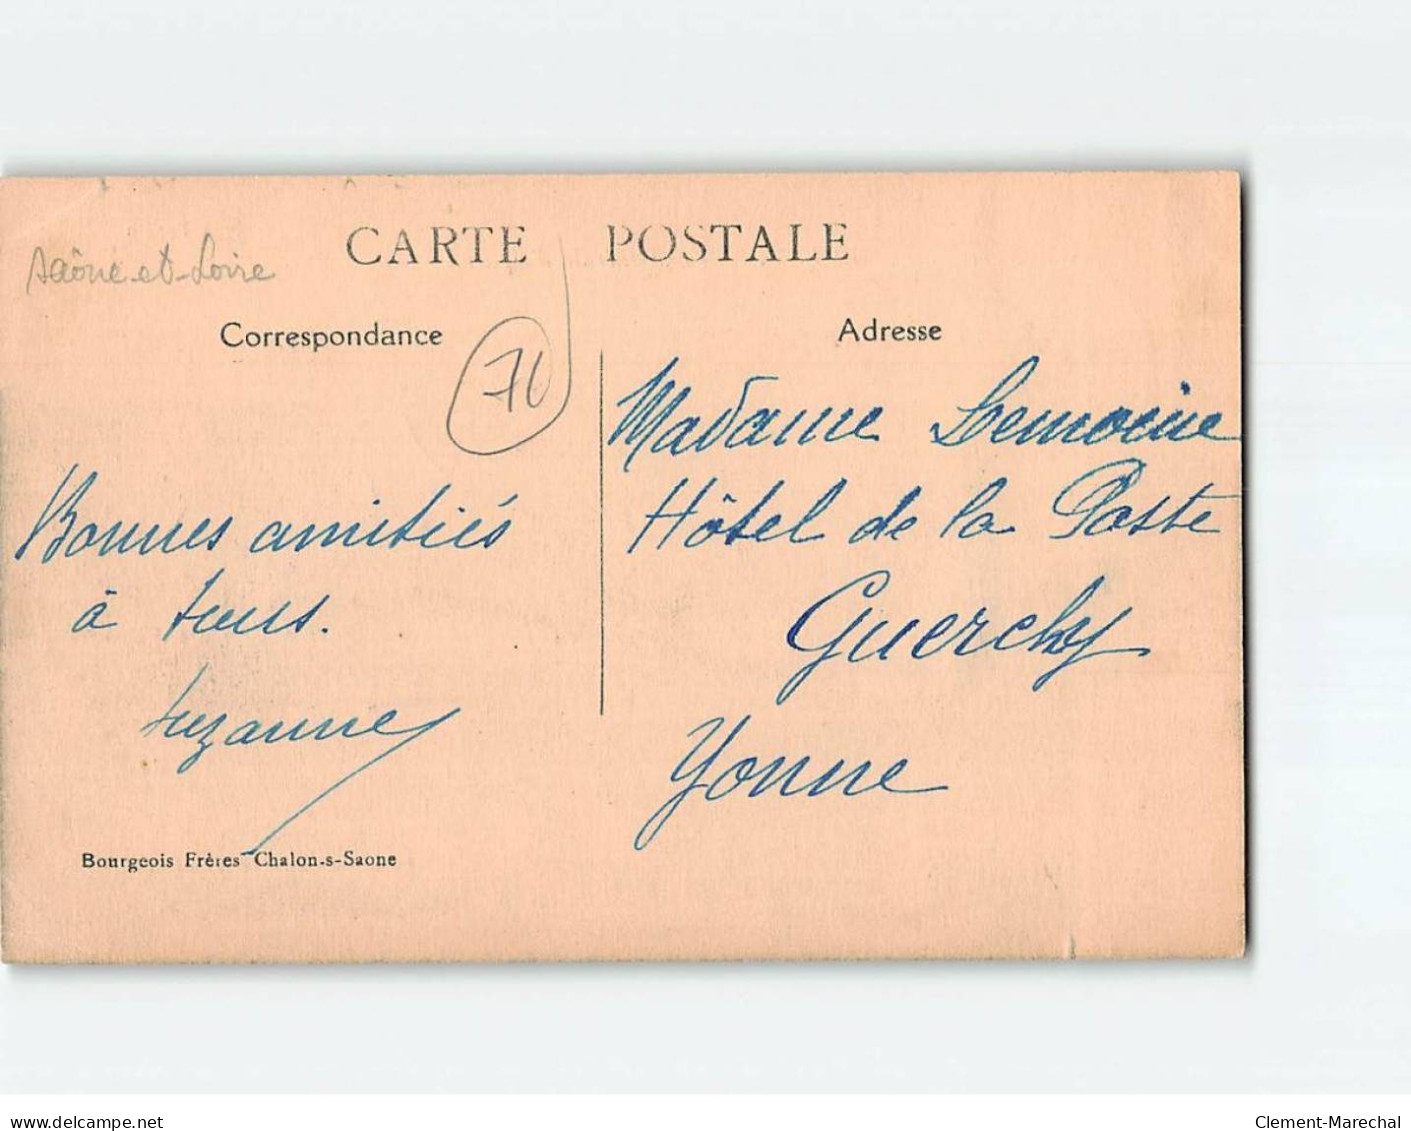 CARTE POSTALE
Saône-et-Loire
Correspondance
Adresse
71
Bonnes amitiés
à tous.
Suzanne
Madame Lemoine
Hôtel de la Poste
Guerchy
Yonne
Bourgeois Frères Chalon-s-Saone
delcampe.net
Clement-Marechal